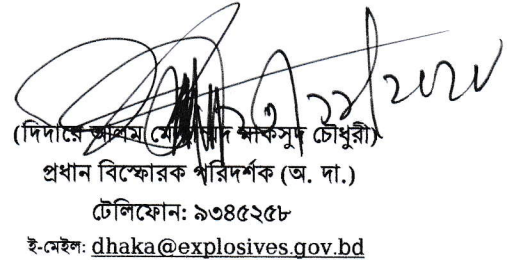 (দিদারে আলম মোহাম্মদ মাকসুদ চৌধুরী)
প্রধান বিস্ফোরক পরিদর্শক (অ. দা.)
টেলিফোন: ৯৩৪৫২৫৮
ই-মেইল: dhaka@explosives.gov.bd